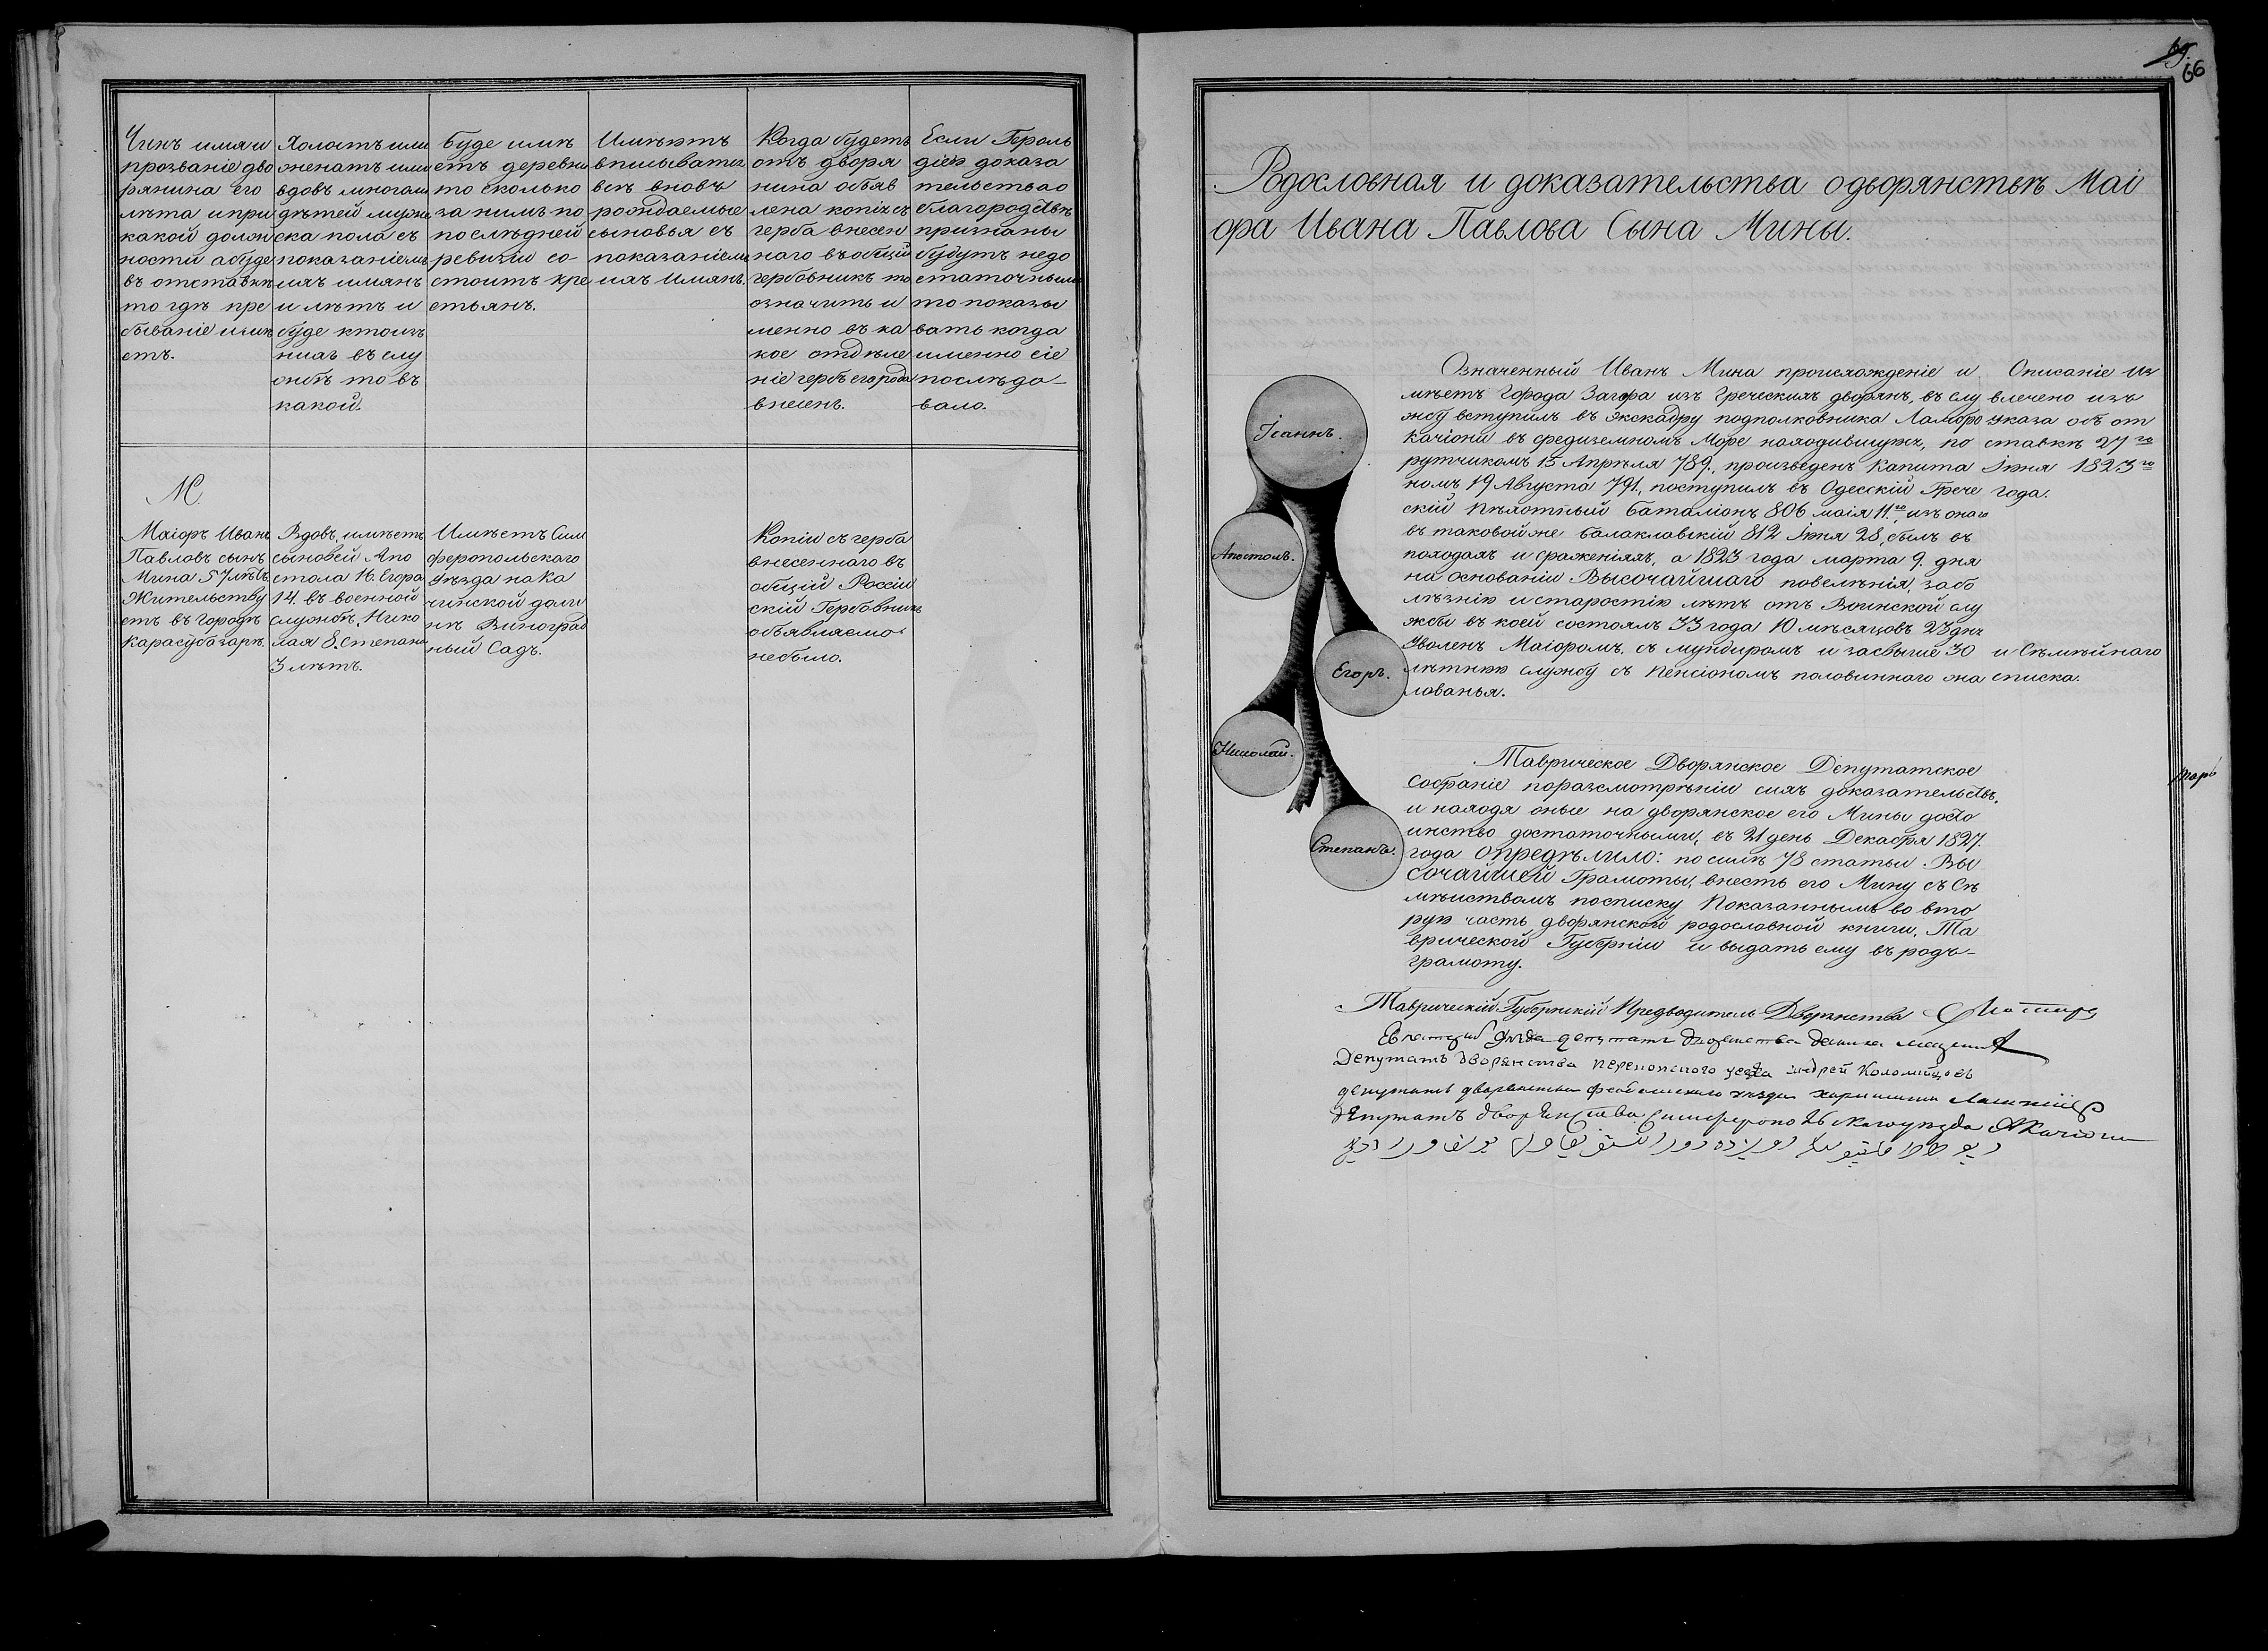 Чинъ имя и
прозваніе дво
рянина его
лѣта и при
какой долж
ности а буде
въ отставкѣ
то гдѣ пре
бываніе имѣ
етъ.
Холостъ или
женатъ или
вдовъ многали
дѣтей муже
ска пола съ
показаніемъ
ихъ имянъ
и лѣтъ и
буде кто изъ
нихъ въ слу
жбѣ то въ
какой.
Буде имѣ
етъ деревни
то сколько
за нимъ по
послѣдней
ревизіи со-
стоитъ кре
стьянъ.
Имѣютъ
вписыватся
всѣ вновь
рождаемые
сыновья съ
показаніемъ
ихъ имянъ.
Когда будетъ
отъ дворя
нина объяв
лена копія съ
герба внесен
наго въ общій
гербовникъ то
означить и
менно въ ка
кое отдѣле
ніе гербъ его рода
внесенъ.
Если Героль
діею доказа
тельства о
благородствѣ
признаны
будутъ недо
статочными
то показы
вать когда
именно сіе
послѣдо-
вало.
М.
Маіоръ Иванъ
Павловъ сынъ
Мина 57 лѣтъ.
Жительству
етъ въ городѣ
Карасубазарѣ.
Вдовъ, имѣетъ
сыновей Апо
стола 16. Егора
14. въ военной
службѣ, Нико
лая 8. Степана
3 лѣтъ.
Имѣетъ Сим
феропольскаго
уѣзда на Ка
чинской доли
нѣ Виноград
ный Садъ.
Копіи съ герба
внесеннаго въ
общій Россій
скій Гербовникъ
объявляемо
небыло.
65.
66
Родословная и доказательства о дворянствѣ Маі
ора Ивана Павлова Сына Мины.
Іоаннъ.
Апостолъ.
Егоръ.
Николай.
Степанъ.
Означенный Иванъ Мина происхожденіе и
мѣетъ города Загора изъ Греческихъ дворянъ, въ слу
жбу вступилъ въ экскадру подполковника Ламбро
Качіони въ средиземномъ море находившуюся, по
рутчикомъ 15 Апрѣля 789., произведенъ Капита
номъ 19 Августа 791., поступилъ въ Одесскій Грече
скій пѣхотный баталіонъ 806 маія 11.го, изъ онаго
въ таковой же Балаклавскій 812 Іюня 28, былъ въ
походахъ и сраженіяхъ, а 1823 года марта 9. дня
на основаніи Высочайшаго повелѣнія, забо
лѣзнію и старостію лѣтъ отъ Воинской слу
жбы въ коей состоялъ 33 года 10 мѣсяцовъ 23 дня
Уволенъ Маіоромъ, съ мундиромъ и засвыше 30
лѣтнюю службу съ пенсіономъ половиннаго жа
лованья.
Описаніе из
влечено изъ
указа объ от
ставкѣ 27го
Іюня 1823го
года.
и Семѣйнаго
списка.
Таврическое Дворянское Депутатское
Собраніе поразсмотрѣніи сихъ доказательствъ,
и находя оные на дворянское его Мины досто
инство достаточными, въ 21 день Декабря 1827.
года опредѣлило: по силѣ 78 статьи. Вы
сочайшей Грамоты, внесть его Мину съ Се
мѣйствомъ посписку показаннымъ во вто
рую часть дворянской родословной книги, Та
врической Губерніи и выдать ему въ родъ-
грамоту.
Таврическій Губернскій Предводитель Дворянства
депутатъ
Депутатъ дворянства перекопского уезда Андрей Коломійцовъ
депутатъ дворянства феодосійскаго уезда
депутатъ дворянства Симферопольскаго уезда АКачіони